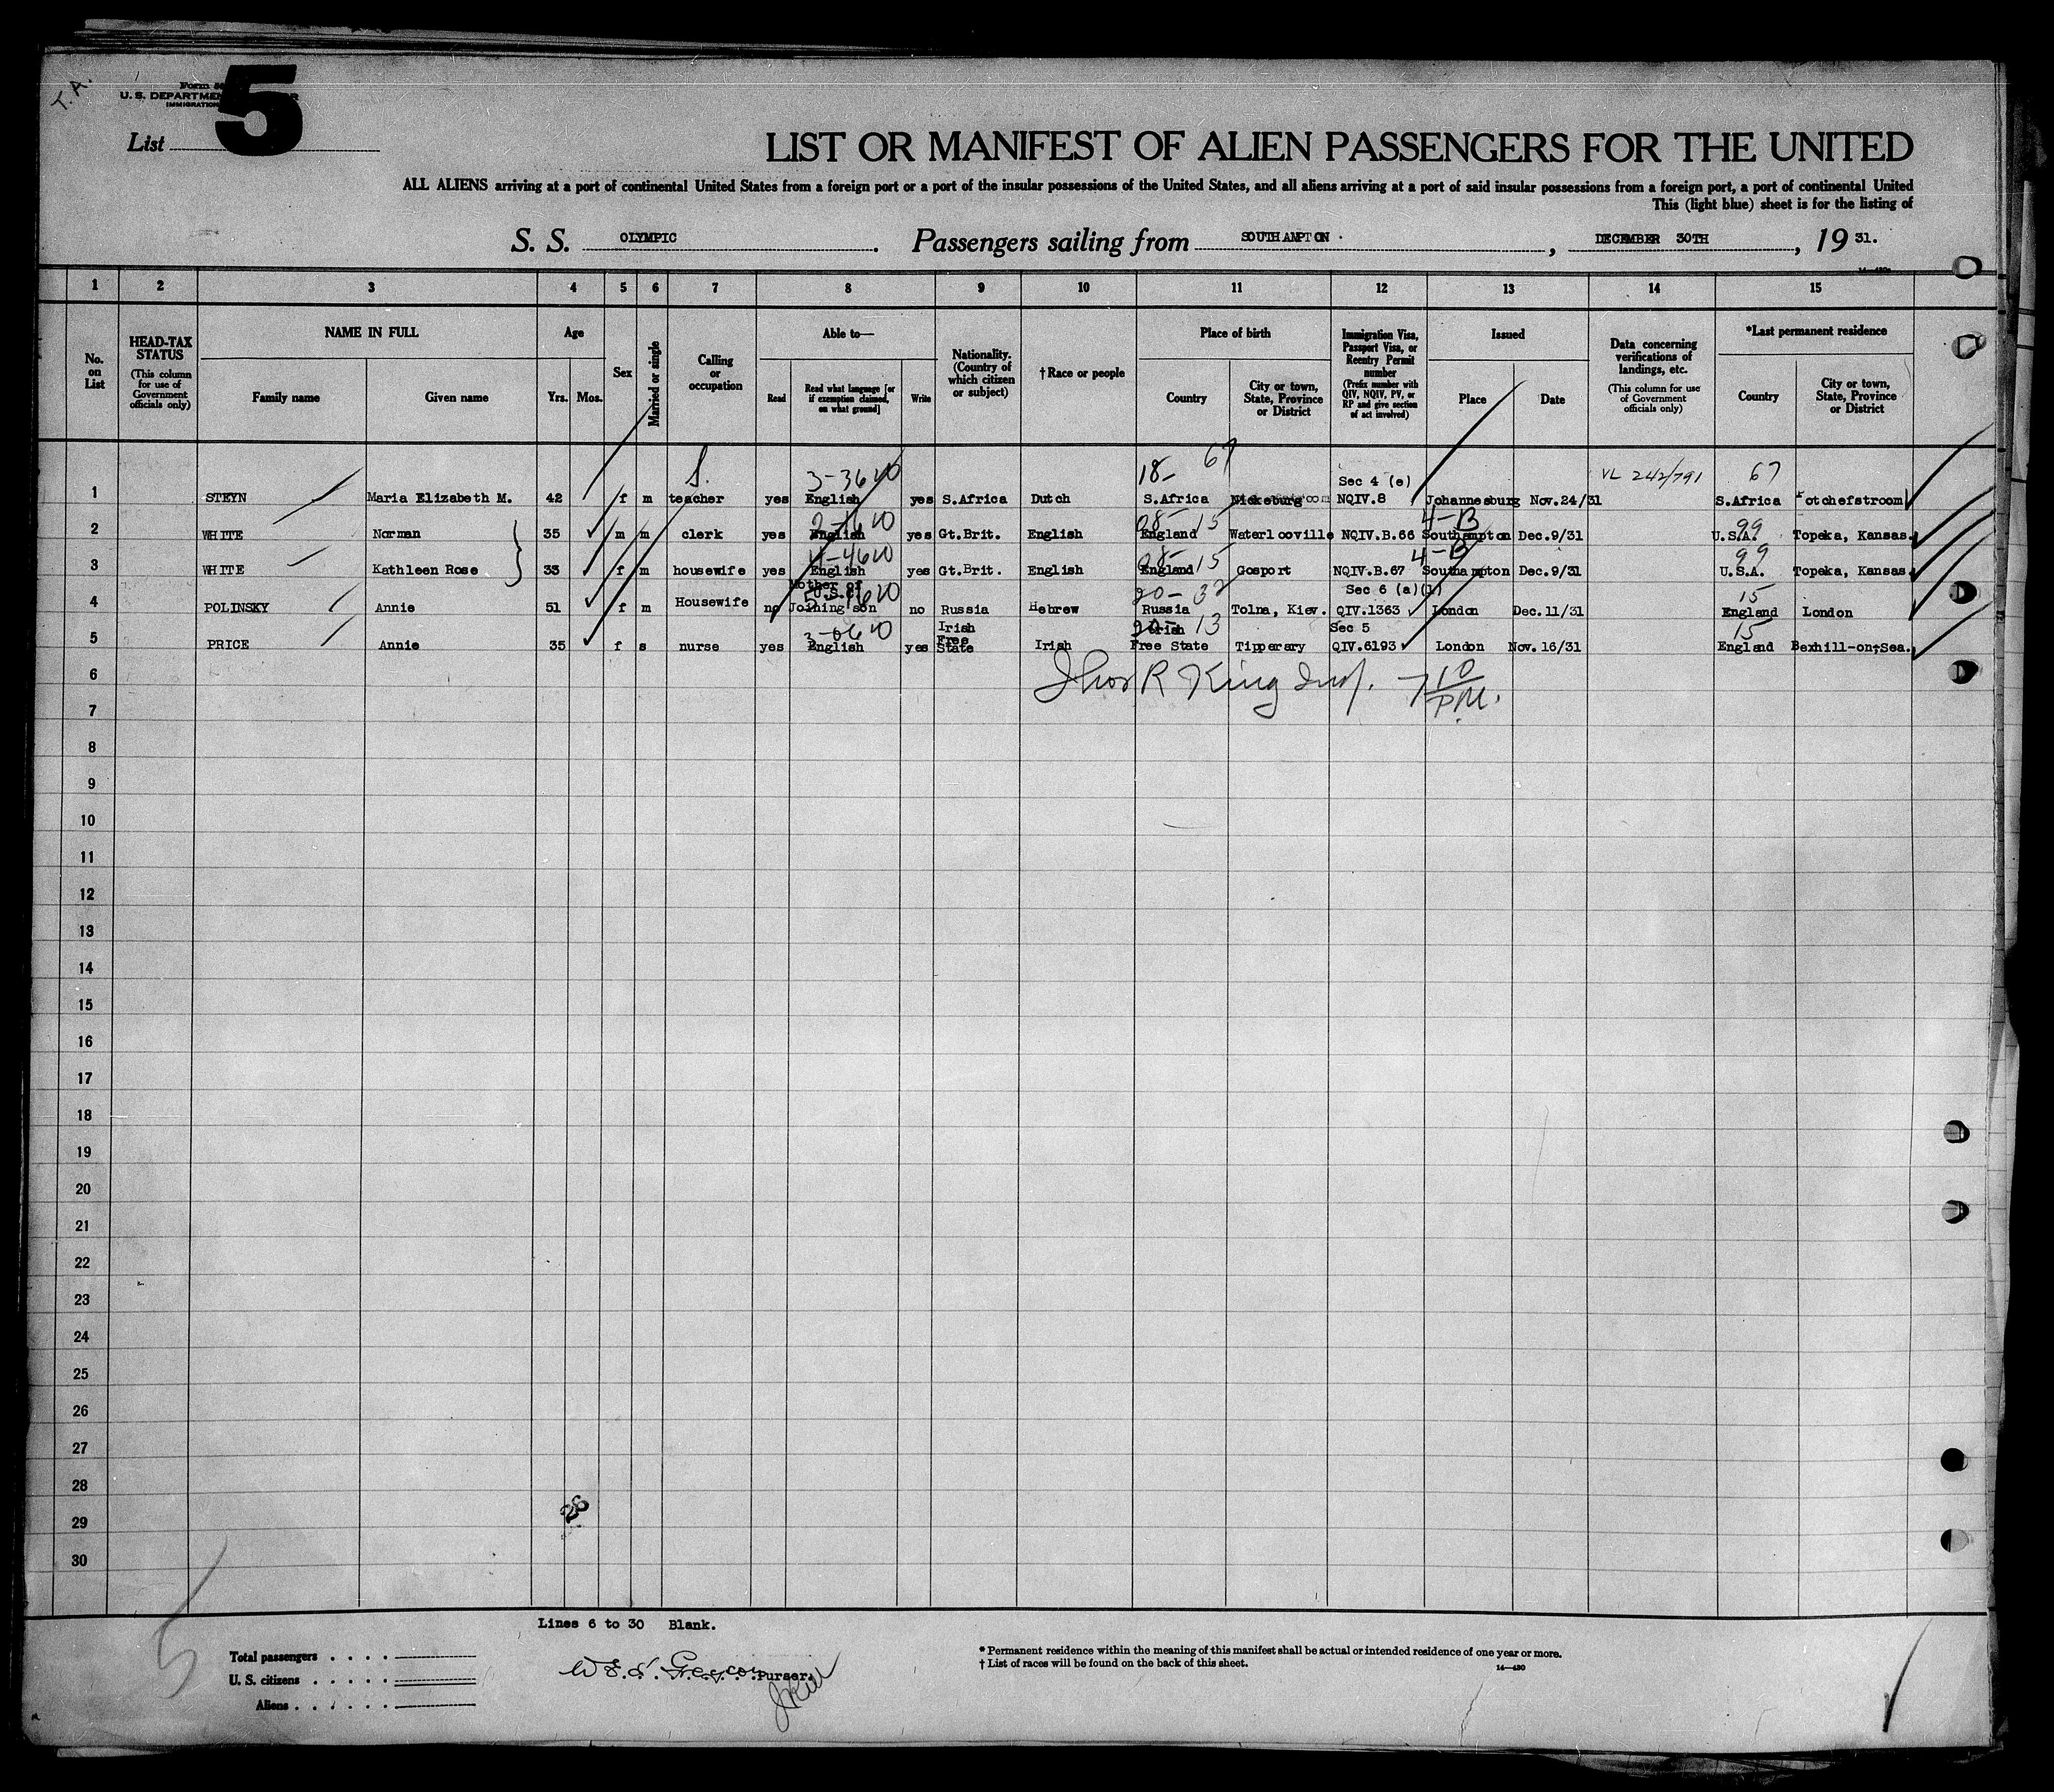 T. A.
Form 5
U. S. DEPARTME R
IMMIGRATION
List 5
LIST OR MANIFEST OF ALIEN PASSENGERS FOR THE UNITED
ALL ALIENS arriving at a port of continental United States from a foreign port or a port of the insular possessions of the United States, and all aliens arriving at a port of said insular possessions from a foreign port, a port of continental United
This (light blue) sheet is for the listing of
S. S. OLYMPIC. Passengers sailing from SOUTHAMPTON, DECEMBER 30TH, 19 31.
1 2 3 4 5 6 7 8 9 10 11 12 13 14 15
No. on List
HEAD-TAX STATUS (This column for use of Government officials only)
NAME IN FULL
Family name Given name
Age
Yrs. Mos.
Sex
Married or single
Calling or occupation
Able to—
Read Read what language [or if exemption claimed, on what ground] Write
Nationality. (Country of which citizen or subject)
†Race or people
Place of birth
Country City or town, State, Province or District
Immigration Visa, Passport Visa, or Reentry Permit number (Prefix number with QIV, NQIV, PV, or RP and give section of act involved)
Issued
Place Date
Data concerning verifications of landings, etc. (This column for use of Government officials only)
*Last permanent residence
Country City or town, State, Province or District
S. 3-3620 18- 67 Sec 4 (e) VL 242/791 67
1 STEYN Maria Elizabeth M. 42 f m teacher yes English yes S.Africa Dutch S.Africa NQIV.8 Johannesburg Nov.24/31 S.Africa Potchefstroom
08- 15 4-B 99
2 WHITE Norman 35 m m clerk yes English yes Gt.Brit. English England Waterlooville NQIV.B.66 Southampton Dec.9/31 U.S.A. Topeka, Kansas.
4-4620 08- 15 4-B 99
3 WHITE Kathleen Rose 33 f m housewife yes English yes Gt.Brit. English England Gosport NQIV.B.67 Southampton Dec.9/31 U.S.A. Topeka, Kansas.
Mother of U.S.C. 20- 32 Sec 6 (a)(1) 15
4 POLINSKY Annie 51 f m Housewife no Joining son no Russia Hebrew Russia Tolna, Kiev. QIV.1363 London Dec.11/31 England London
13 Sec 5 15
5 PRICE Annie 35 f s nurse yes English yes Irish Free State Irish Irish Free State Tipperary QIV.6193 London Nov.16/31 England Bexhill-on-Sea.
6 Thos R King Insp. 7 10 P.M.
7
8
9
10
11
12
13
14
15
16
17
18
19
20
21
22
23
24
25
26
27
28
29
30
26
Lines 6 to 30 Blank.
Total passengers
U. S. citizens
Aliens
Purser.
* Permanent residence within the meaning of this manifest shall be actual or intended residence of one year or more.
† List of races will be found on the back of this sheet.
14—430
5